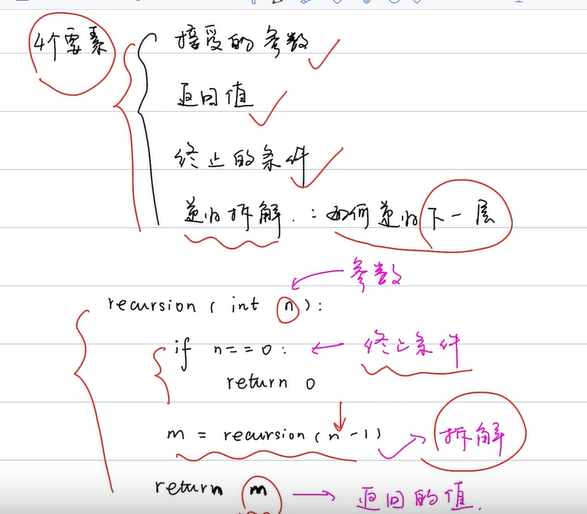 4个要素
接受的参数
返回值
终止的条件
递归拆解.:如何递归下一层
参数
recursion(int n):
if n==0: 终止条件
return 0
m = recursion(n-1) 拆解
return m 返回的值.